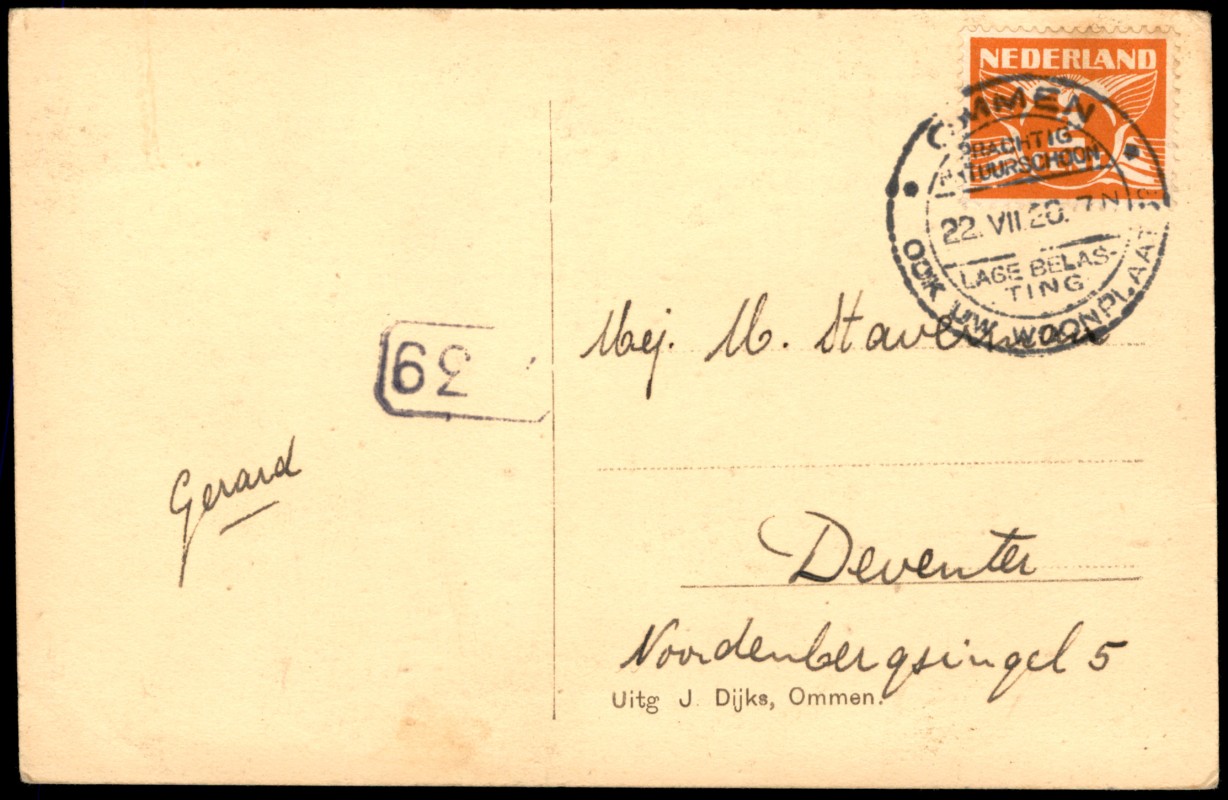 NEDERLAND
OMMEN
PRACHTIG
NATUURSCHOON
22.VII.20. 7N
LAGE BELAS-
TING
OOK UW WOONPLAATS
Mej. M. Staverman
39
Gerard
Deventer
Noordenbergsingel 5
Uitg J. Dijks, Ommen.